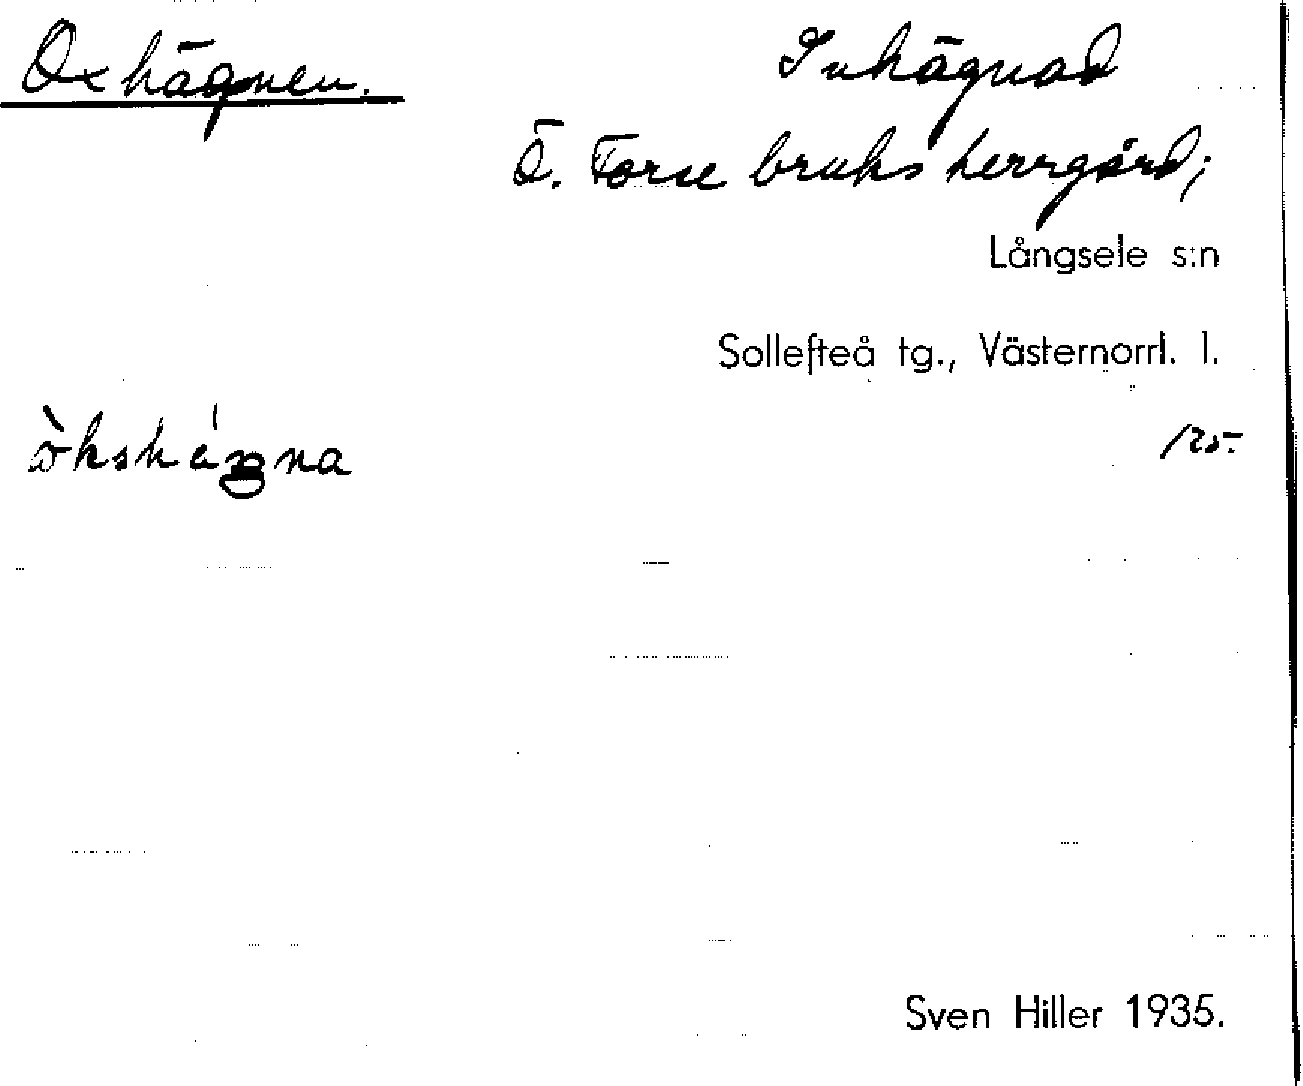 Oxhägnen.
Inhägnad
Ö. Forse bruks herrgård;
Långsele s:n
Sollefteå tg., Västernorrl. l.
125.
Sven Hiller 1935.